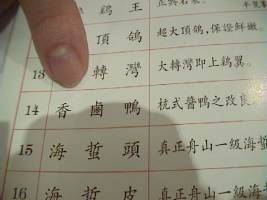 鴿 王
頂 鴿 超大頂鴿，保證鮮嫩。
13 轉 灣 大轉灣即上鷄翼。
14 香 鹵 鴨 杭式醬鴨之改良
15 海 蜇 頭 真正舟山一級海蜇
16 海 蜇 皮 真正舟山一級海